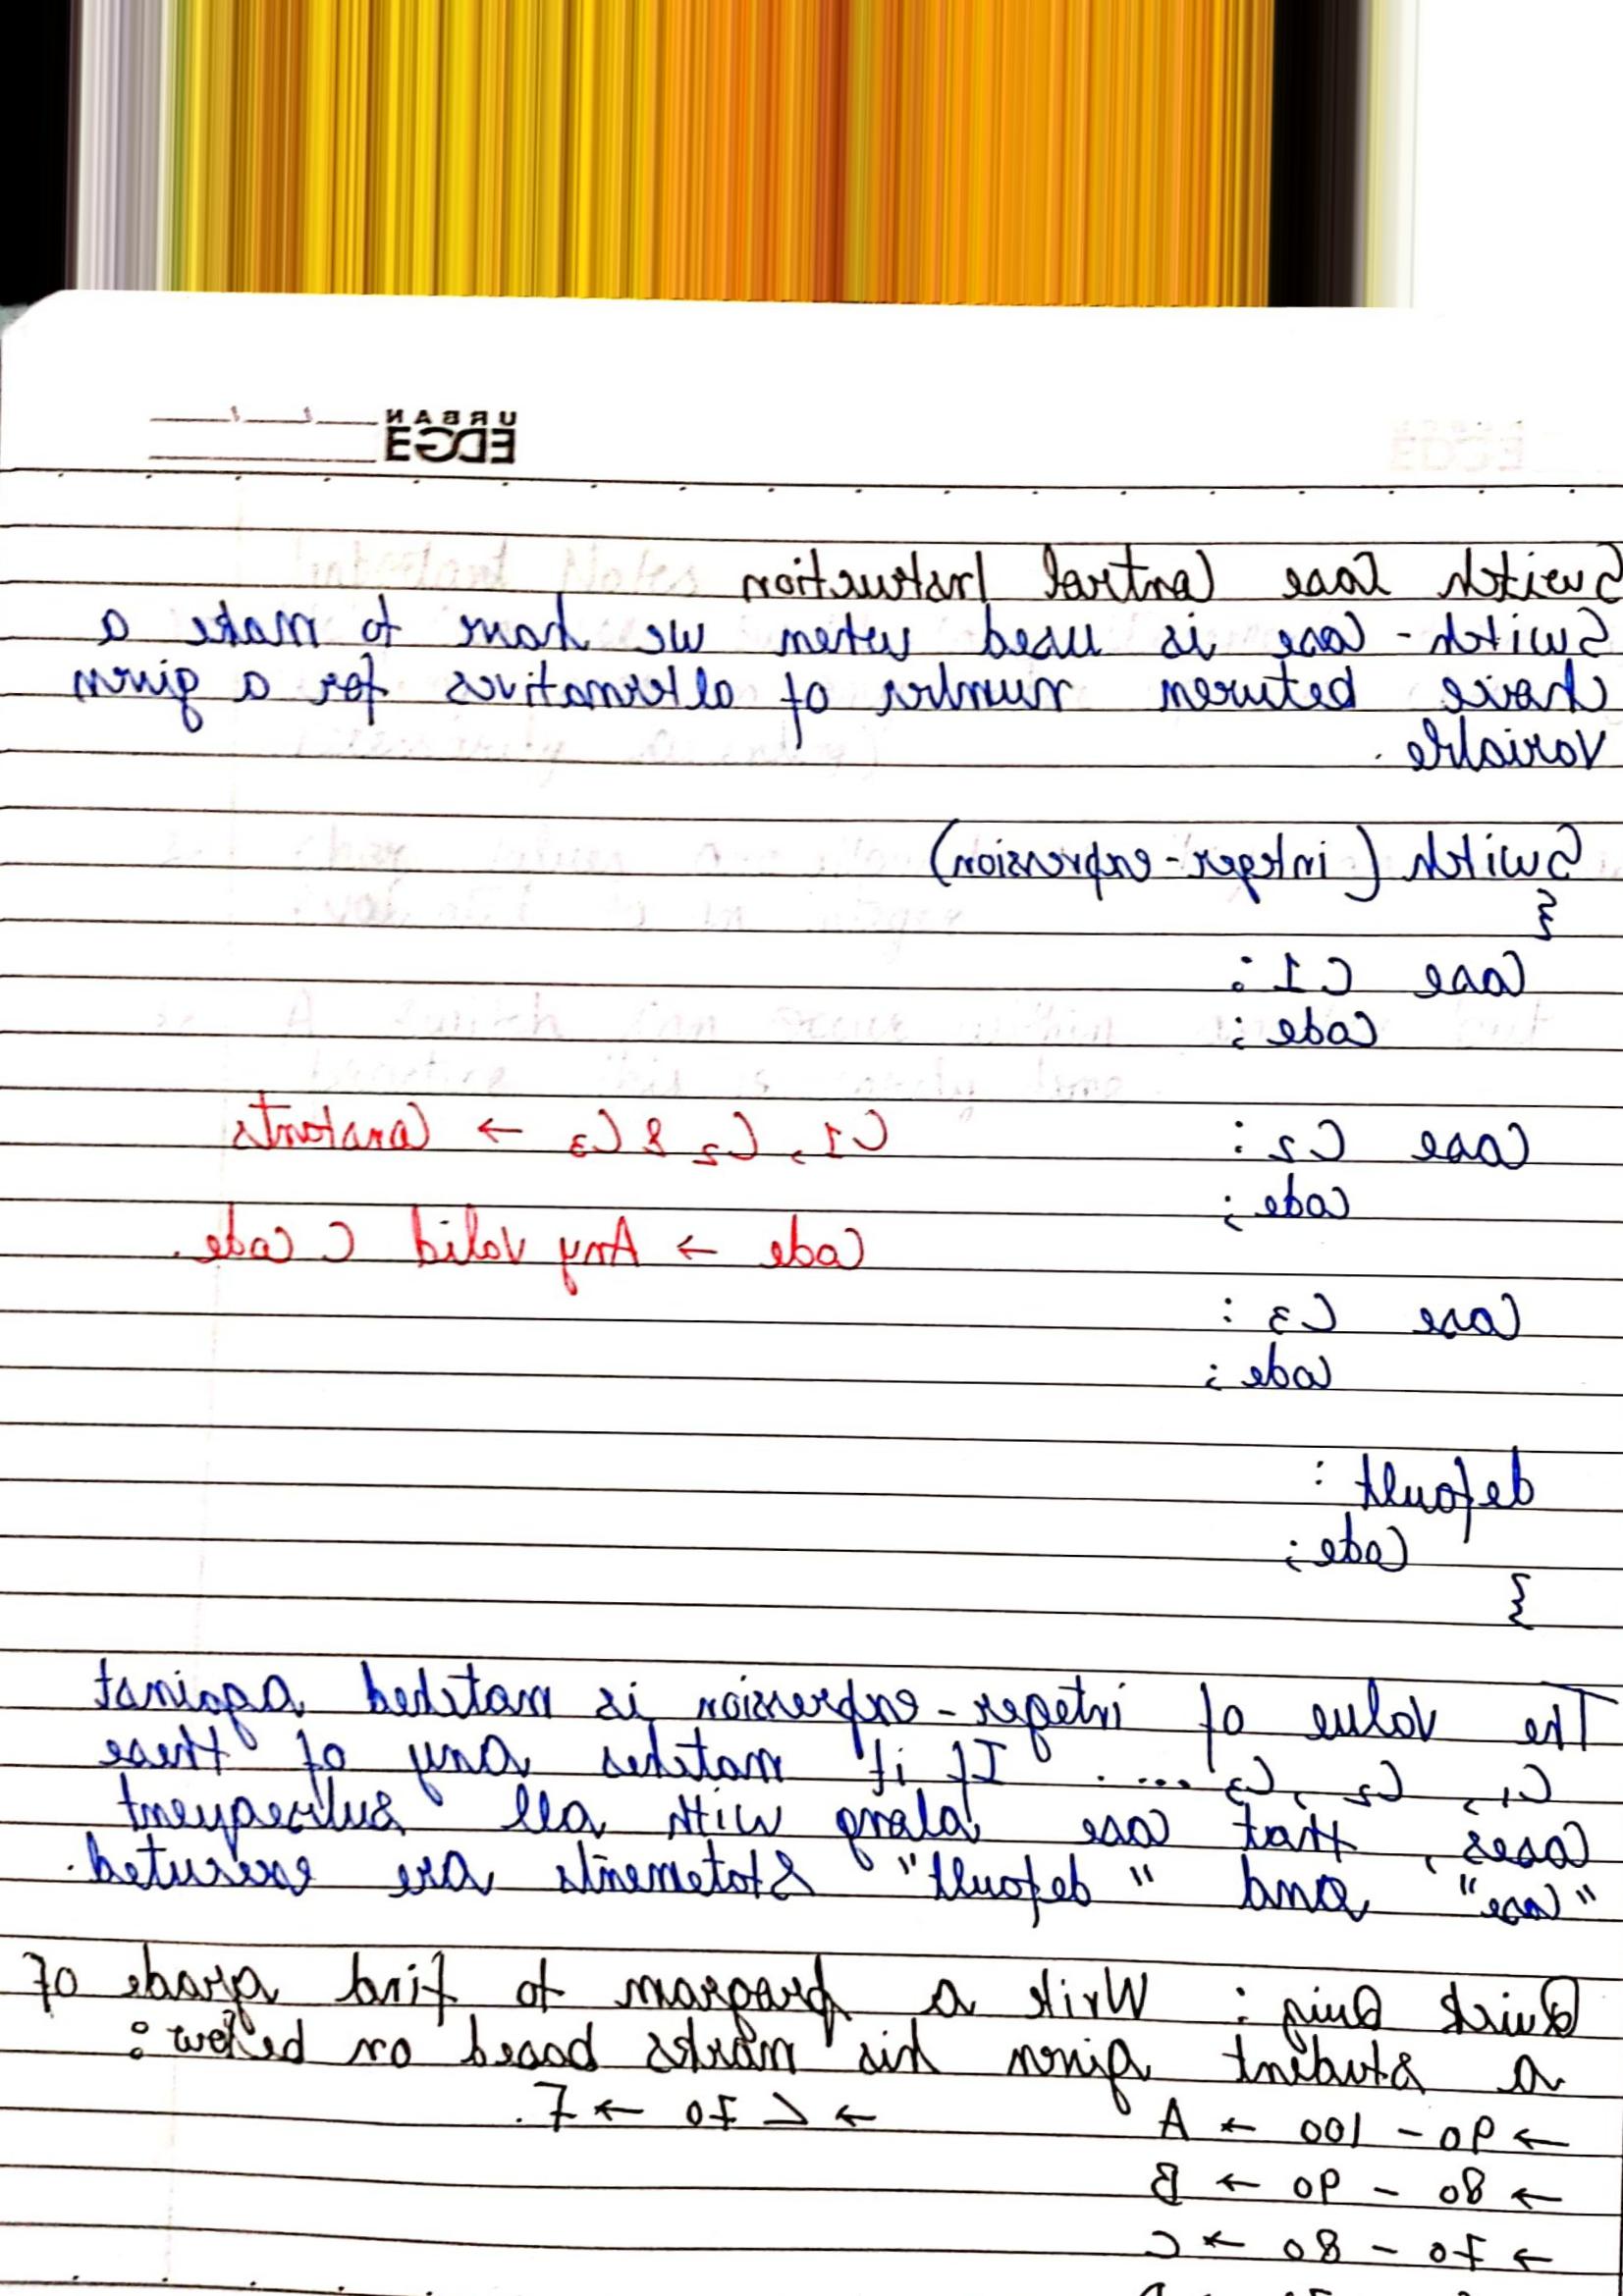 URBAN
EDGE
Switch Case Control Instruction
Switch - Case is used when we have to make a
choice between number of alternatives for a given
variable.
Switch (integer-expression)
{
Case C1 :
Code ;
Case C2 :
Code ;
C1, C2 & C3 → Constants
Code → Any valid C code.
Case C3 :
Code ;
default :
Code ;
}
The value of integer-expression is matched against
C1, C2, C3 .... If it matches any of these
cases, that case along with all subsequent
"case" and "default" statements are executed.
Quick Quiz : Write a program to find grade of
a student given his marks based on below :
→ 90 - 100 → A
→ < 70 → F.
→ 80 - 90 → B
→ 70 - 80 → C